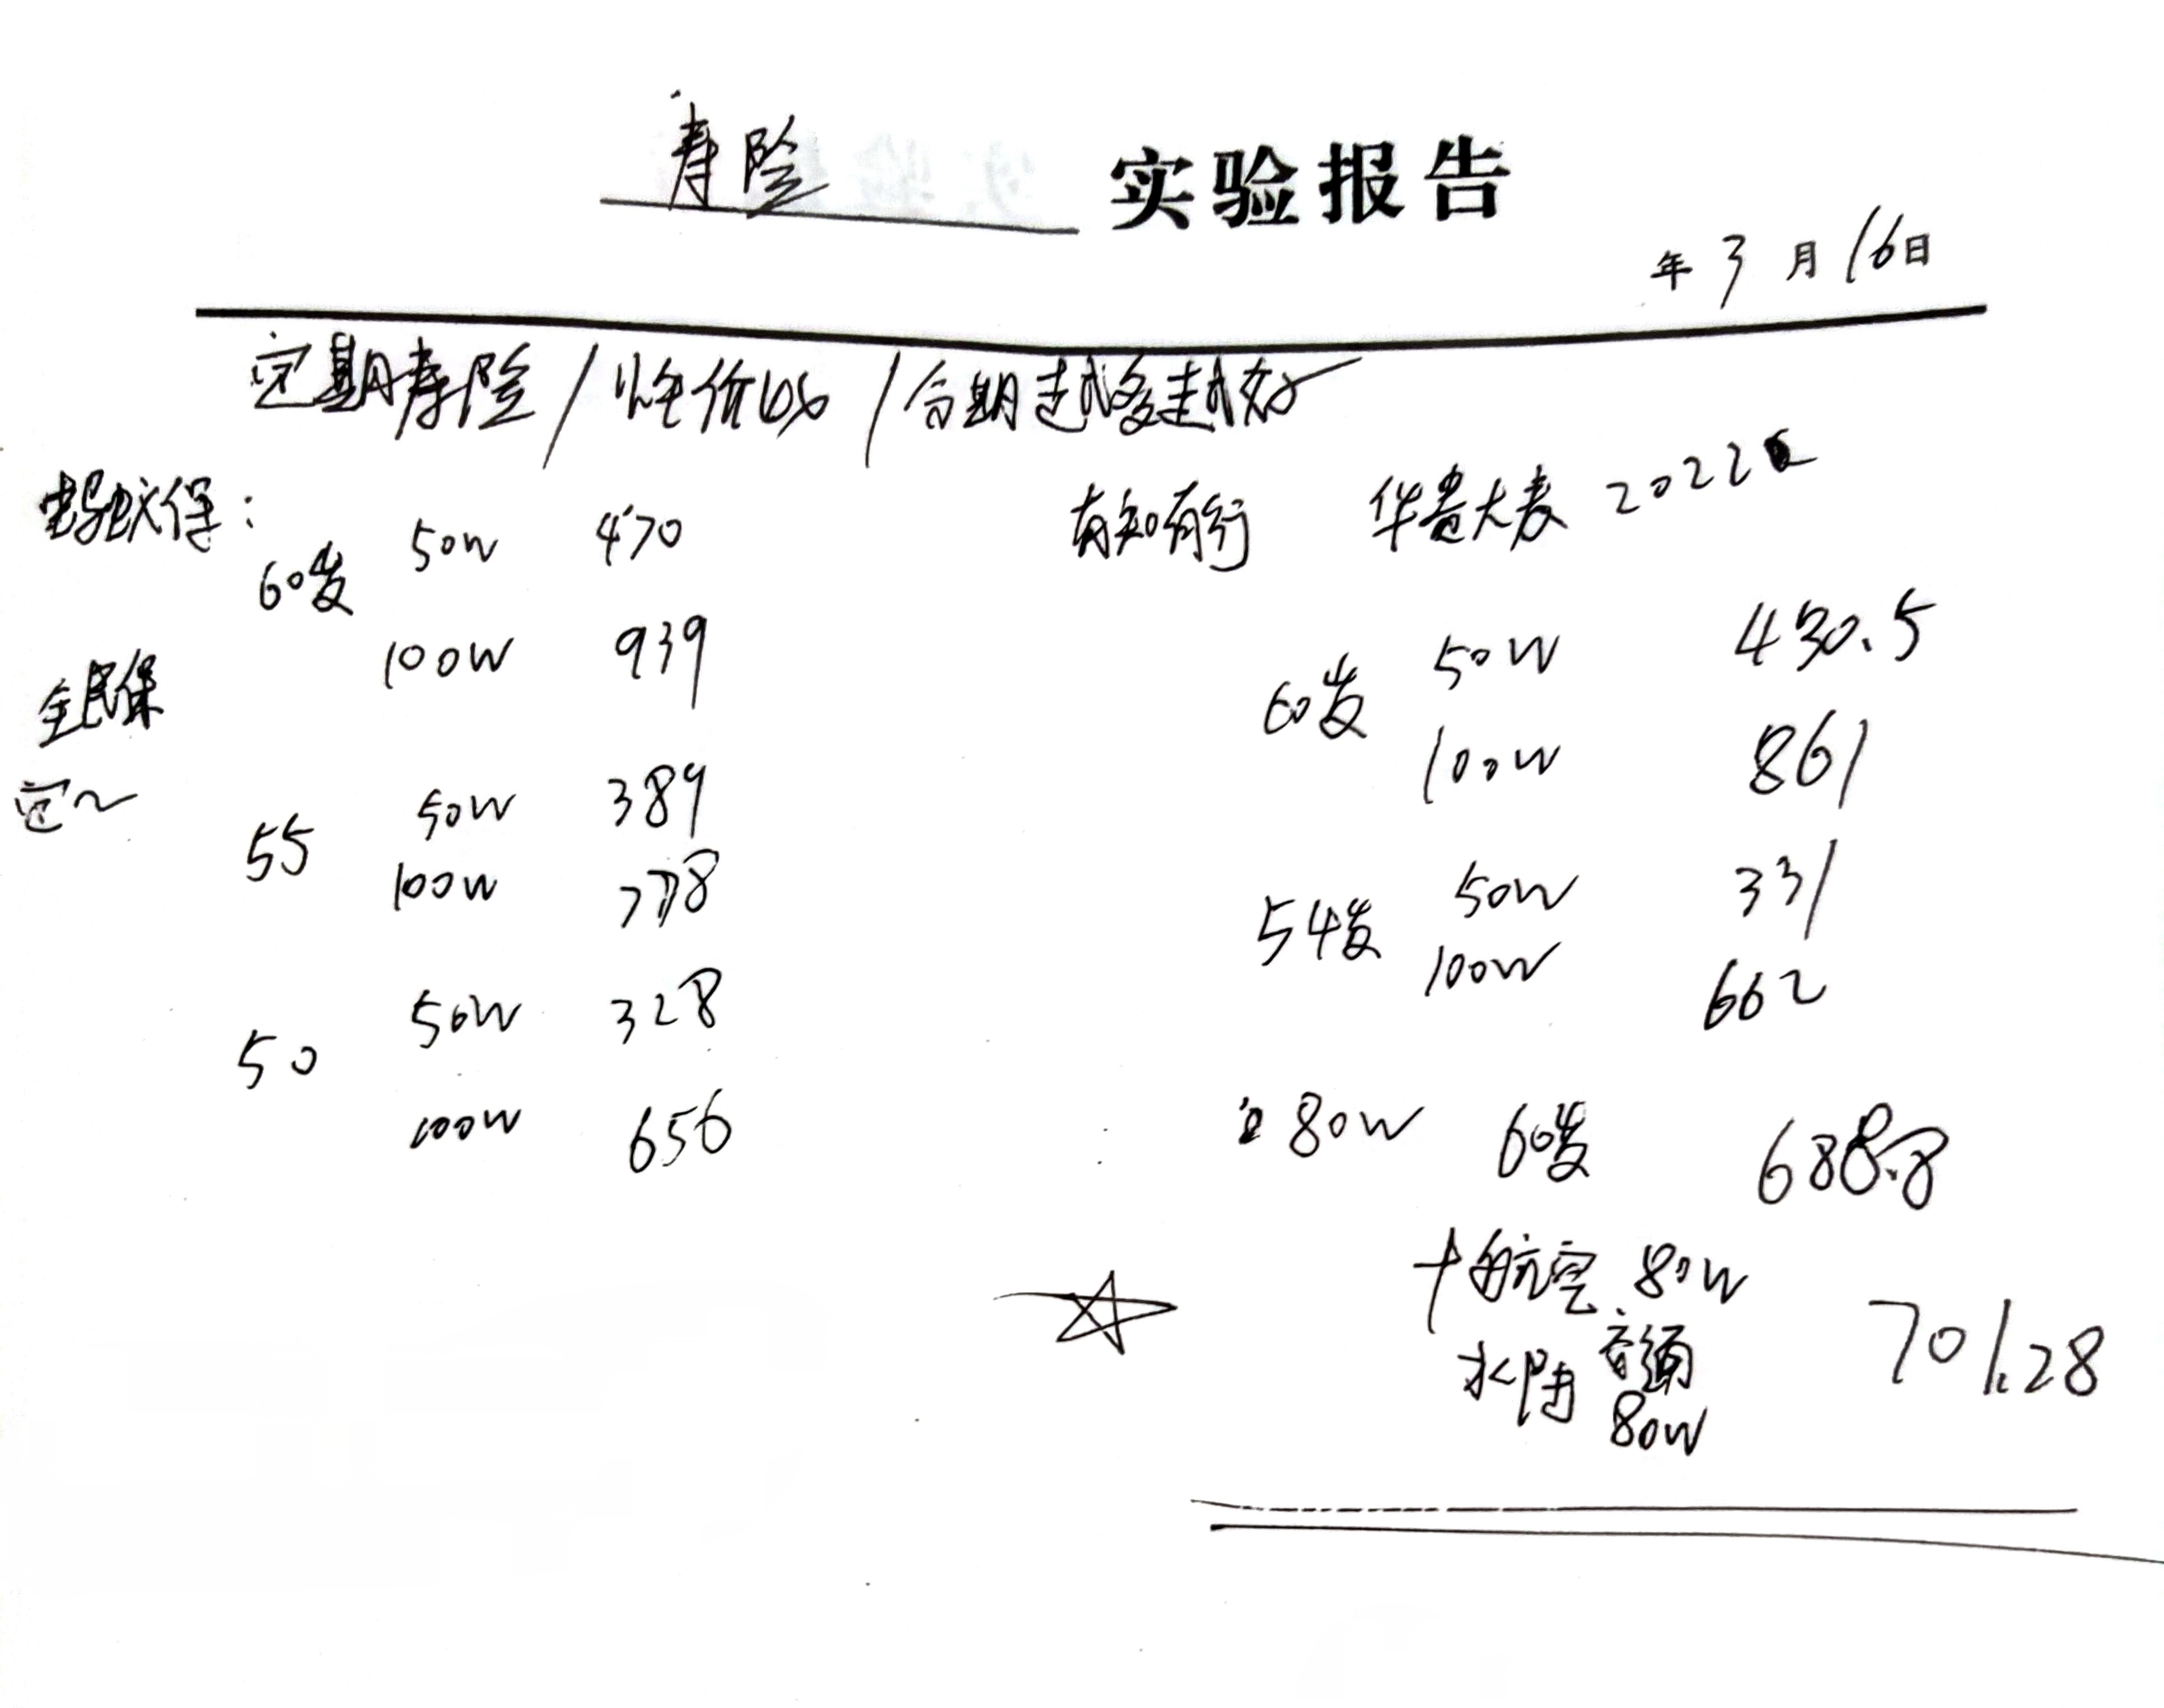 寿险 实验报告
年 3 月 16 日
定期寿险 / 性价比 / 分期越多越好
蚂蚁保:
60岁 50W 470
100W 939
全民保
定~
55 50W 389
100W 778
50 50W 328
100W 656
有知有行 华贵大麦 2022
60岁 50W 430.5
100W 861
54岁 50W 331
100W 662
80W 60岁 688.8
+航空 80W
水陆 普通 80W
701.28